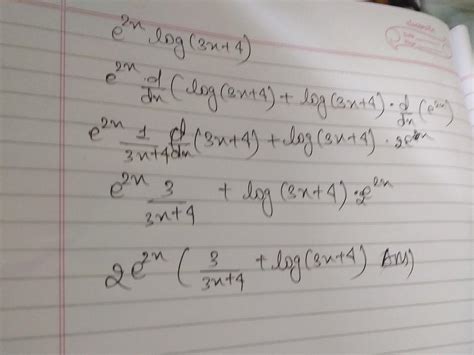 e^{2x} log(3x+4)
e^{2x} d/dx (log(3x+4) + log(3x+4) · d/dx (e^{2x})
e^{2x} 1/3x+4 d/dx (3x+4) + log(3x+4) · 2e^{2x}
e^{2x} 3/3x+4 + log(3x+4) · 2^{2x}
2e^{2x} ( 3/3x+4 + log(3x+4) Ans)